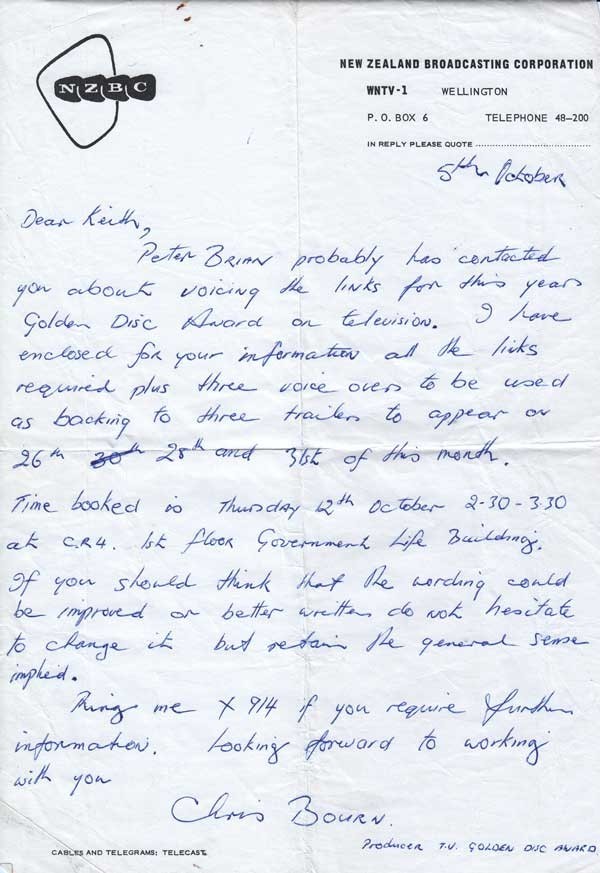 NZBC
NEW ZEALAND BROADCASTING CORPORATION
WNTV-1 WELLINGTON
P. O. BOX 6 TELEPHONE 48-200
IN REPLY PLEASE QUOTE
5th October
Dear Keith,
Peter BRIAN probably has contacted
you about voicing the links for this years
Golden Disc Award on television. I have
enclosed for your information all the links
required plus three voice overs to be used
as backing to three trailers to appear on
26th 30th 28th and 31st of this month.
Time booked is Thursday 12th October 2-30-3.30
at C.R4. 1st floor Government Life Building.
If you should think that the wording could
be improved or better written do not hesitate
to change it but retain the general sense
implied.
Ring me X 914 if you require further
information. Looking forward to working
with you
Chris BOURN.
Producer T.V. GOLDEN DISC AWARD
CABLES AND TELEGRAMS: TELECAST